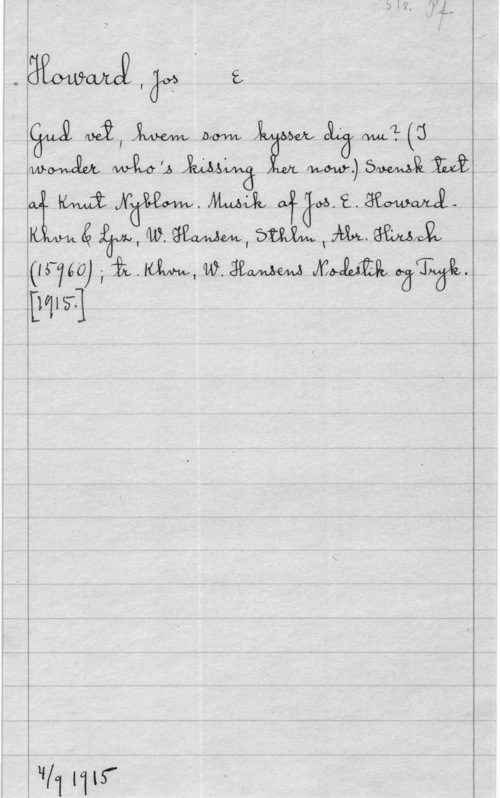 S12. Pf
Howard, Jos E
Gud vet, hvem som kysser dig nu? (I
wonder who's kissing her now.) Svensk text
af Knut Nyblom. Musik af Jos. E. Howard.
Khvn & Lpz, W. Hansen, Sthlm, Abr. Hirsch
(15960); tr. Khvn, W. Hansens Nodestik og Tryk.
[1915.]
4/9 1915